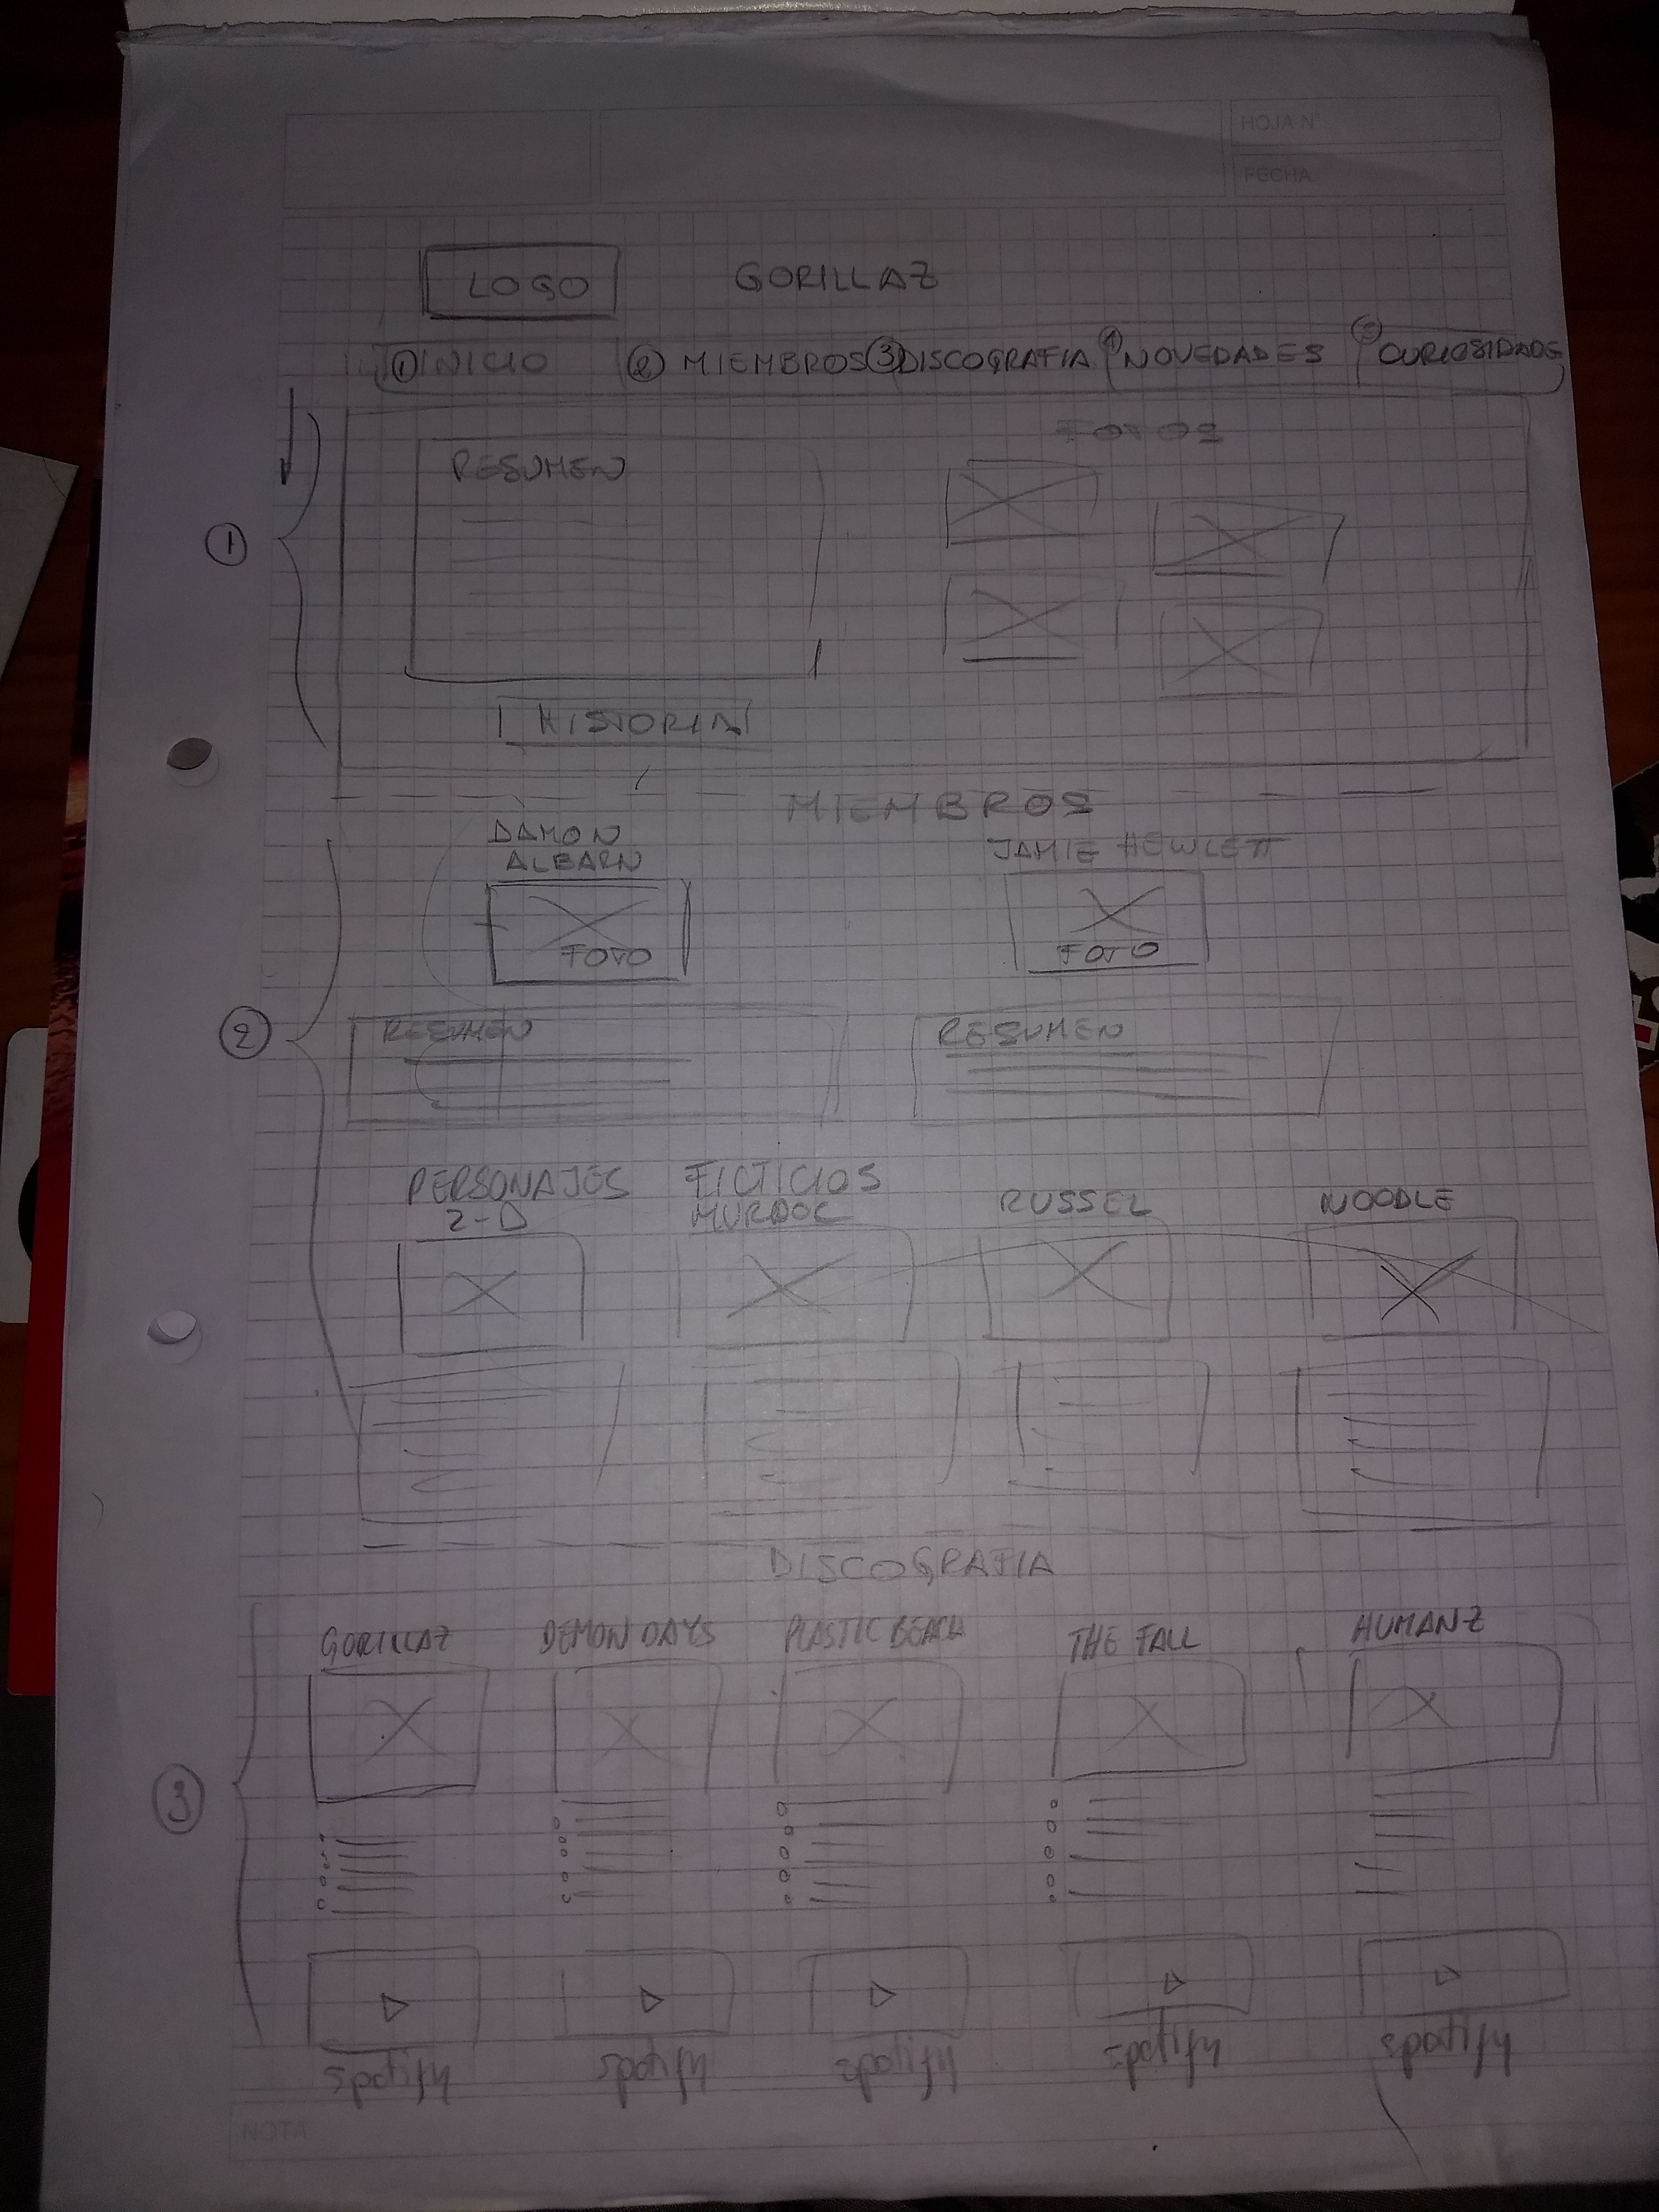 HOJA N
FECHA
LOGO GORILLAZ
① INICIO ② MIEMBROS ③ DISCOGRAFIA ④ NOVEDADES ⑤ CURIOSIDADES
FOTOS
RESUMEN
①
HISTORIA
MIEMBROS
DAMON
ALBARN
JAMIE HEWLETT
FOTO FOTO
②
RESUMEN RESUMEN
PERSONAJES FICTICIOS
2-D MURDOC RUSSEL NOODLE
DISCOGRAFIA
GORILLAZ DEMON DAYS PLASTIC BEACH THE FALL HUMANZ
③
spotify spotify spotify spotify spotify
NOTA